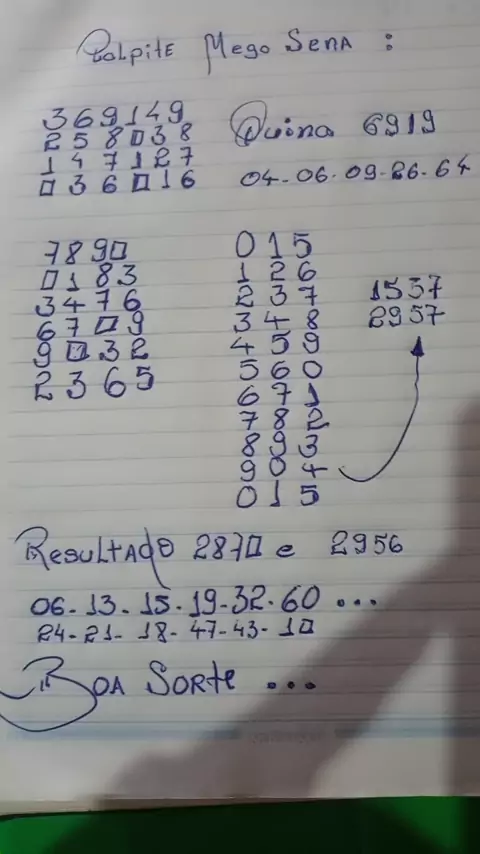 Palpite Mega Sena :
369149
258038
147127
036016
Quina 6919
04-06-09-26-64
7890
0183
3476
6709
9032
2365
015
126
237
348
459
560
671
782
893
904
015
1537
2957
Resultado 2870 e 2956
06-13-15-19-32-60 ...
24-21-18-47-43-10
Boa Sorte ...